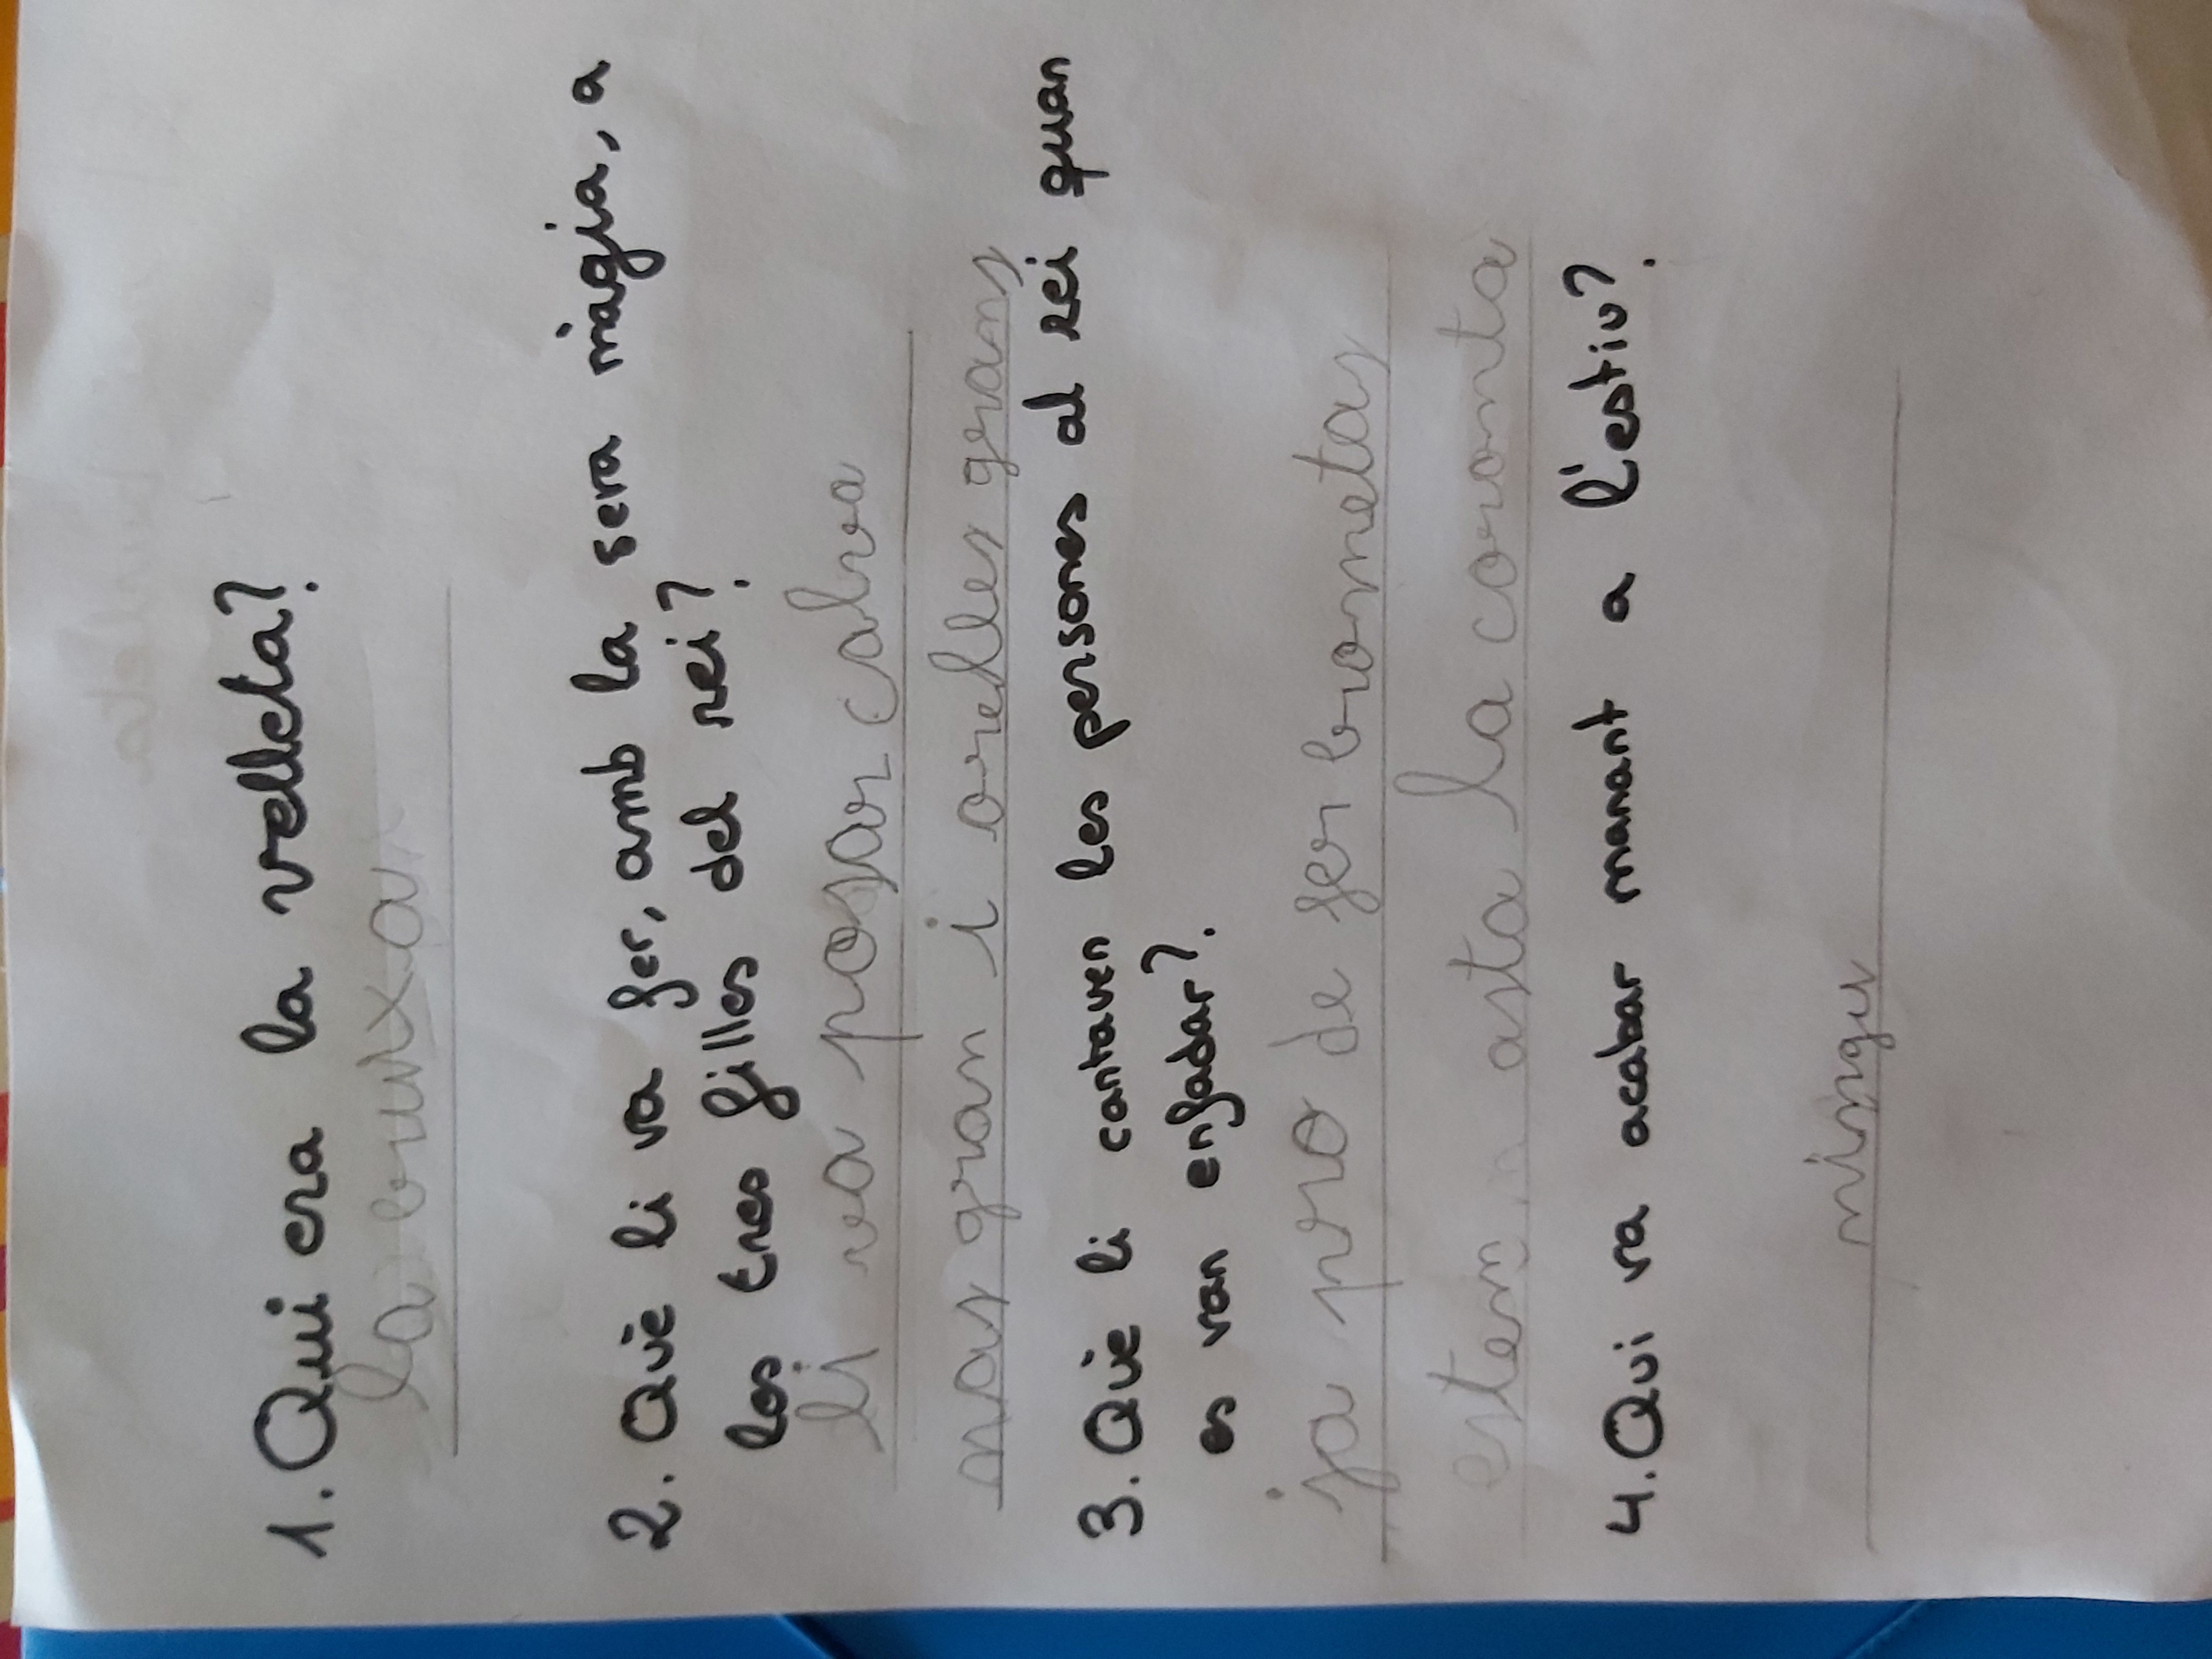 1. Qui era la velleta?
la bruixa
2. Què li va fer, amb la seva màgia, a
les tres filles del rei?
li va posar calva
nas gran i orelles grans
3. Què li cantaven les persones al rei quan
es van enfadar?.
ja pro de fer brometas
estem asta la coronta
4. Qui va acabar manant a l'estiu?
ningu